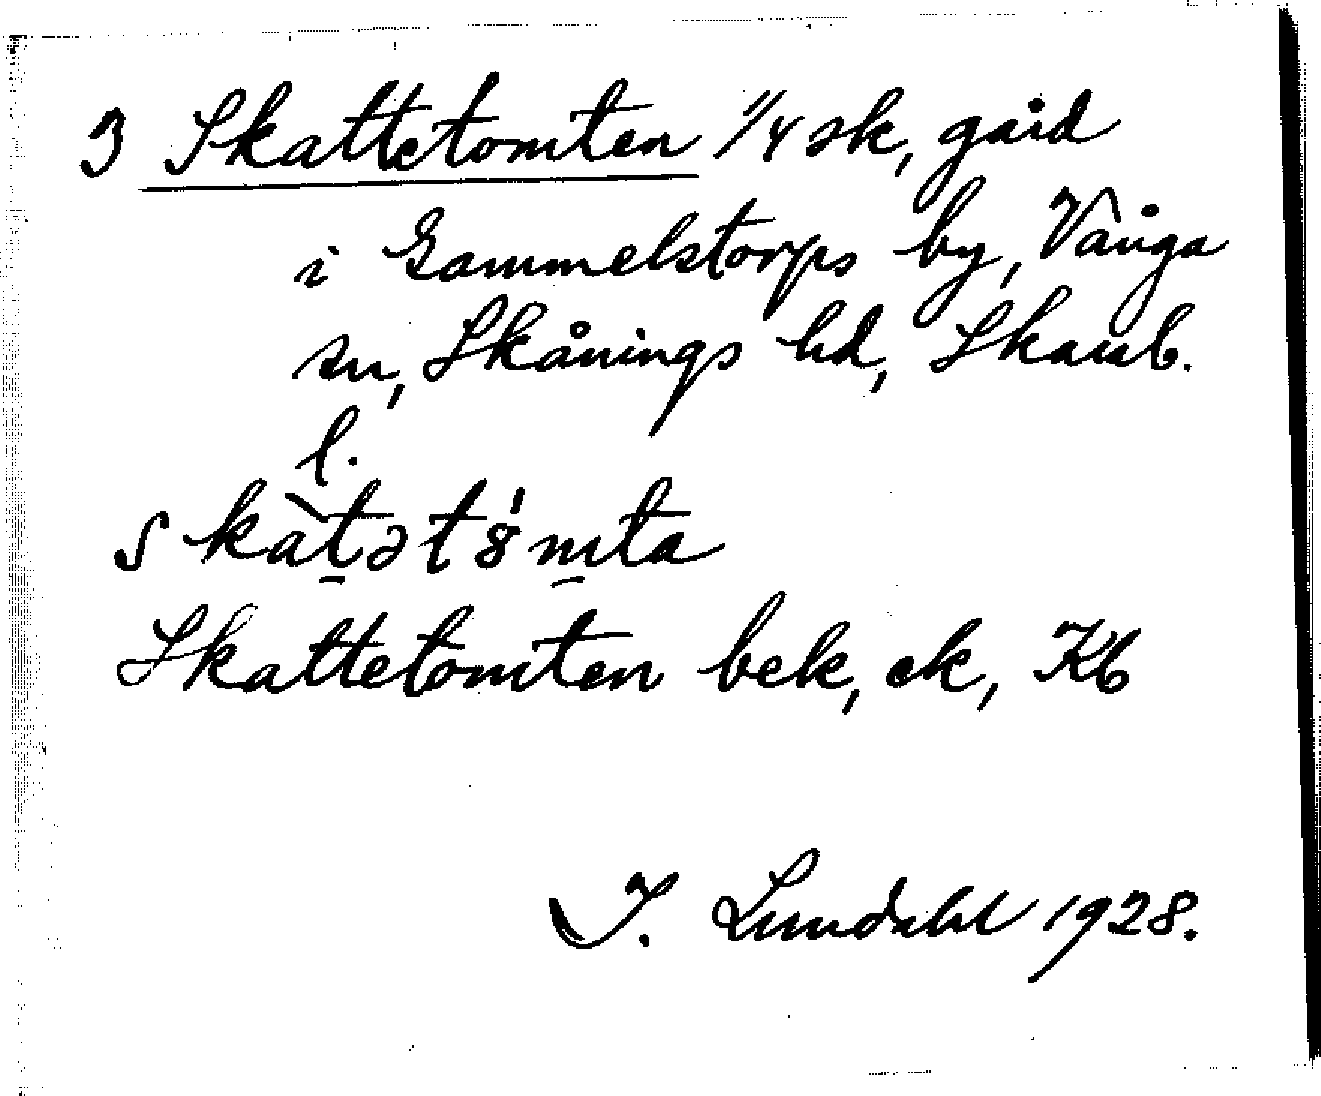 3 Skattetomten 1/4 sk, gård
i Gammelstorps by, Vånga
sn, Skånings hd, Skarab.
l.
skàt̠ət8́m̠ta
Skattetomten bek, ek, Kb
I. Lundahl 1928.